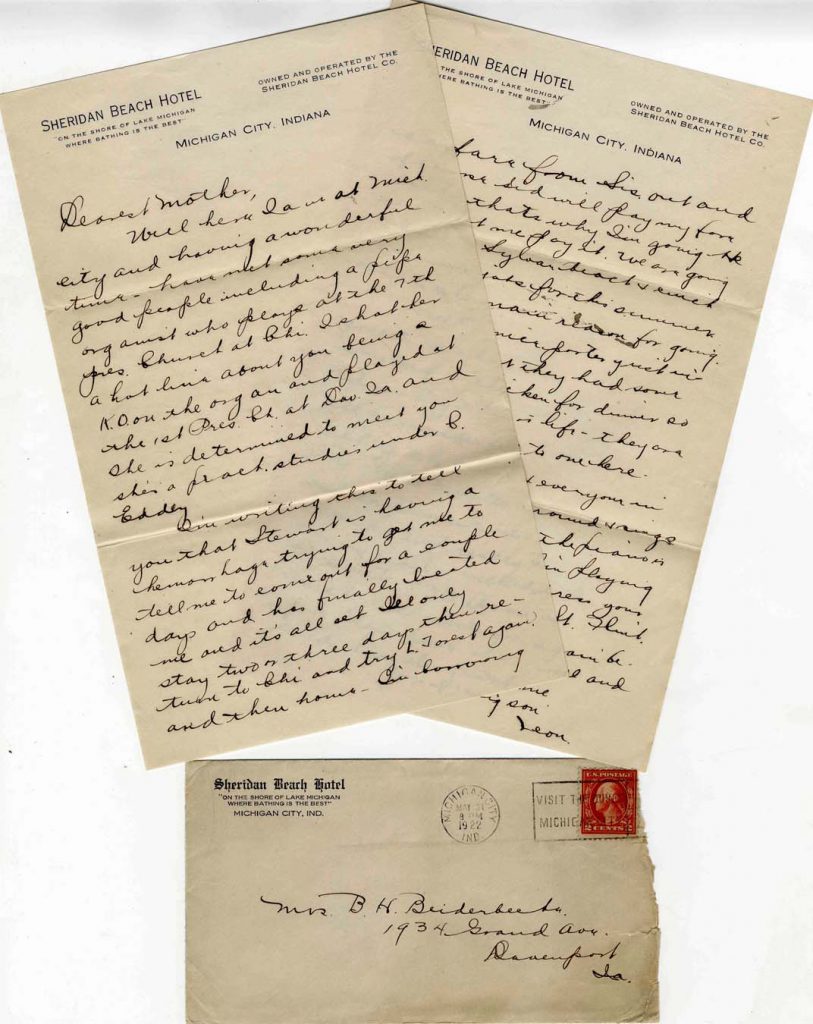 SHERIDAN BEACH HOTEL
"ON THE SHORE OF LAKE MICHIGAN
WHERE BATHING IS THE BEST"
OWNED AND OPERATED BY THE
SHERIDAN BEACH HOTEL CO.
MICHIGAN CITY, INDIANA
Dearest Mother,
Well here I am at Mich.
city and having a wonderful
time - have met some very
good people including a pipe
organist who plays at the 7th
Pres. Church at Chi. I shot her
a hot line about you being a
K.O. on the organ and played at
the 1st Pres. Ch. at Dav. Ia. and
she is determined to meet you
she's a studies under C.
Eddey
I'm writing this to tell
you that Stewart is having a
hemorrhage trying to get me to
tell me to come out for a couple
days and has finally located
me and it's all set I'll only
stay two or three days then re-
turn to Chi and try L. Forest again.
and then home - I'm borrowing
SHERIDAN BEACH HOTEL
ON THE SHORE OF LAKE MICHIGAN
WHERE BATHING IS THE BEST"
OWNED AND OPERATED BY THE
SHERIDAN BEACH HOTEL CO.
MICHIGAN CITY, INDIANA
fare from Sis, out and
Sid will pay my fare
thats why I'm going He
me pay it. We are going
Sylvan beach &
for this summer
main reason for going.
just in
they had some
for dinner so
life - they are
to one here.
everyone in
round & sings
the piano is
in playing
your
Lt. Flint.
be.
and
me
son
Leon.
Sheridan Beach Hotel
"ON THE SHORE OF LAKE MICHIGAN
WHERE BATHING IS THE BEST"
MICHIGAN CITY, IND.
MICHIGAN CITY
MAY 31
1922
IND.
VISIT THE
MICHIGAN
U.S. POSTAGE
2 CENTS 2
Mrs. B. H. Beiderbecke.
1934 Grand Ave.
Davenport
Ia.